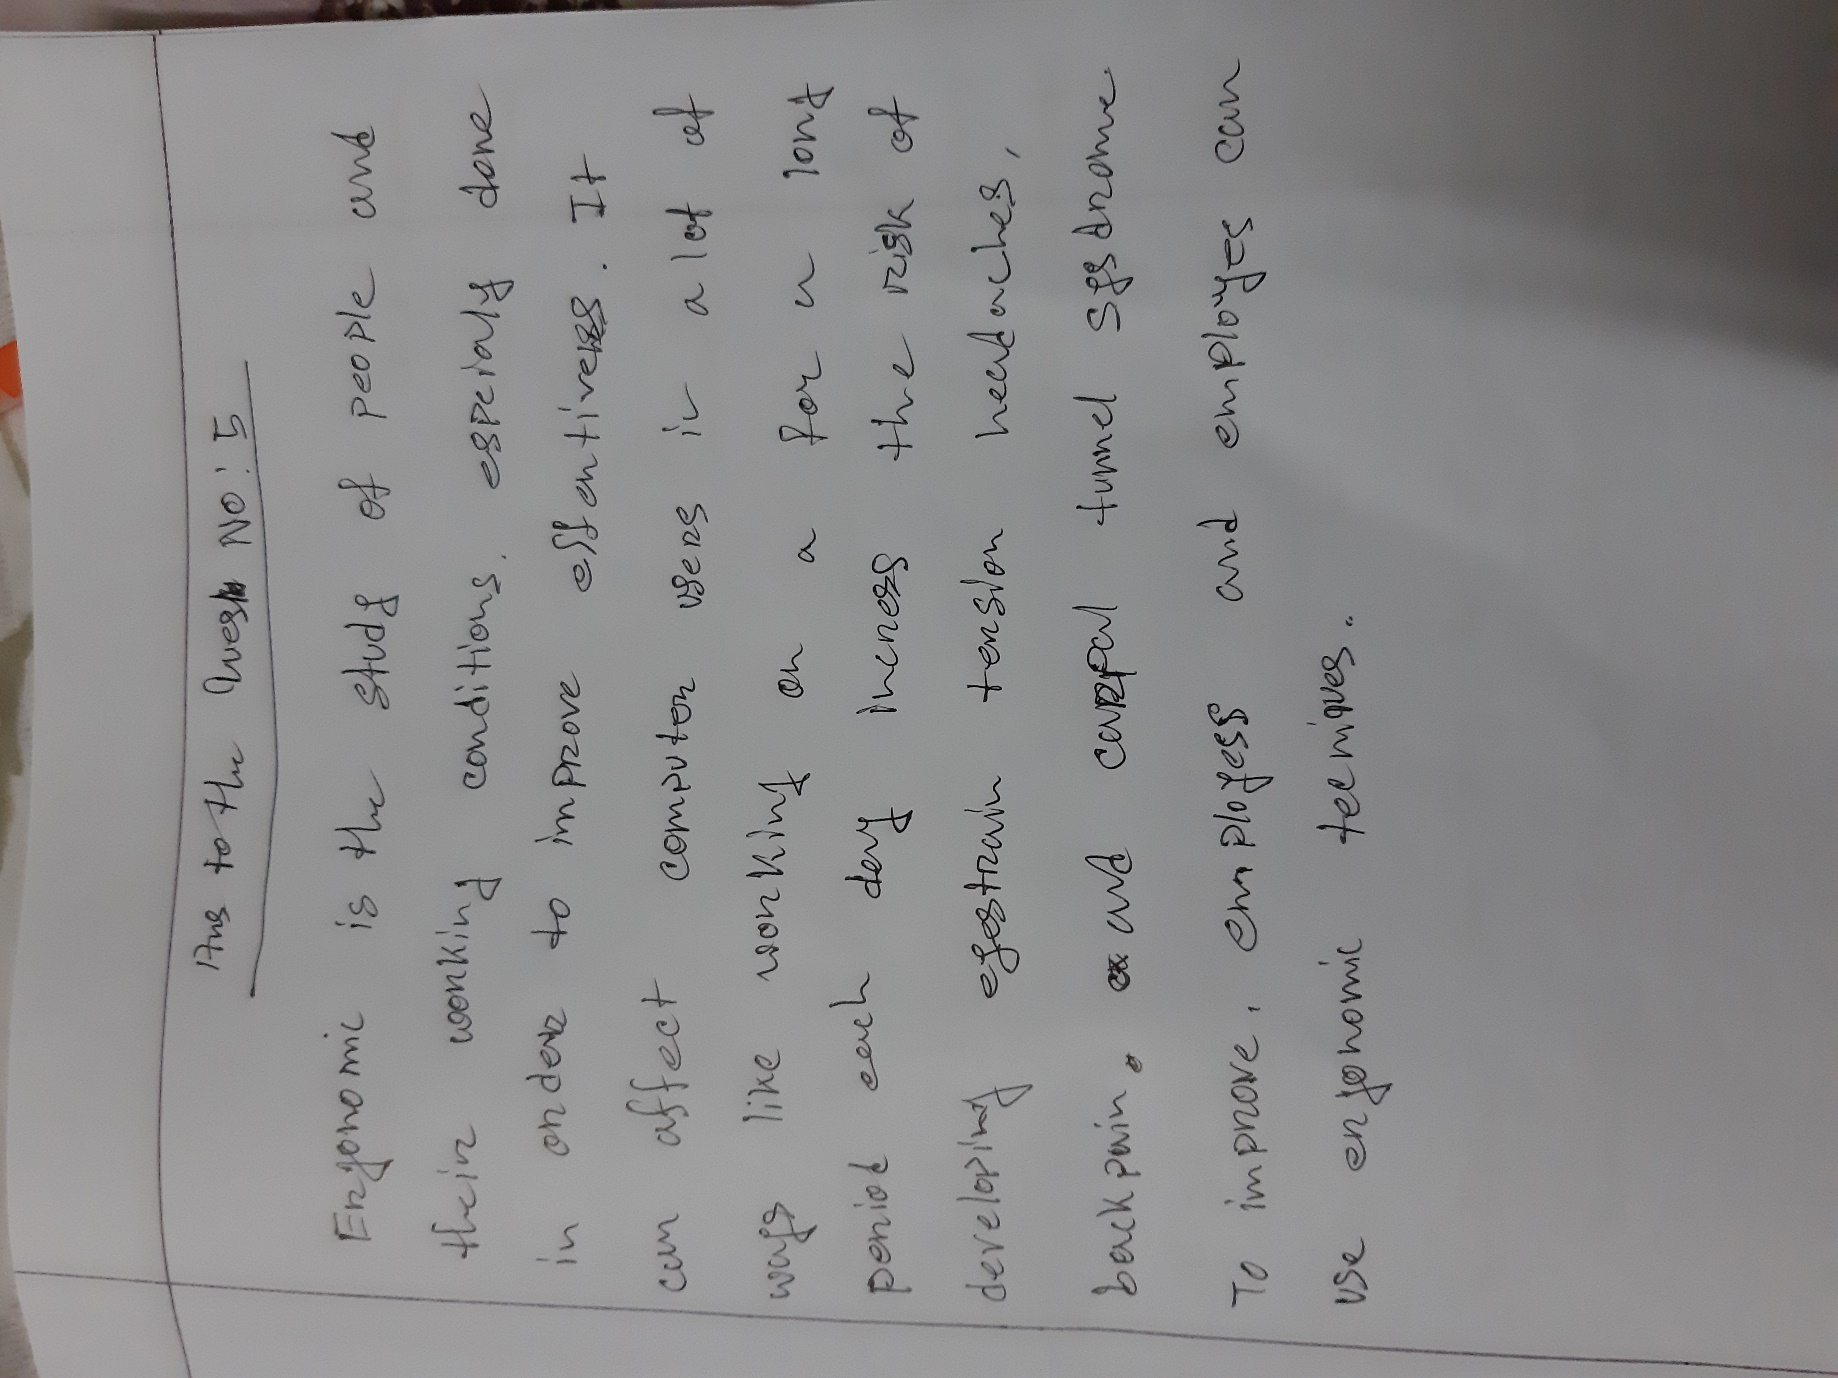 Ans to the Quesn No: 5
Ergonomic is the study of people and
their working conditions, especialy done
in order to improve effentiveness. It
can affect computer users in a lot of
ways like working on a for a long
period each day incress the risk of
developing eyestrain tension headaches,
backpain. and carpal tunnel sysdrome
To improve, employess and employes can
use ergonomic tecniques.